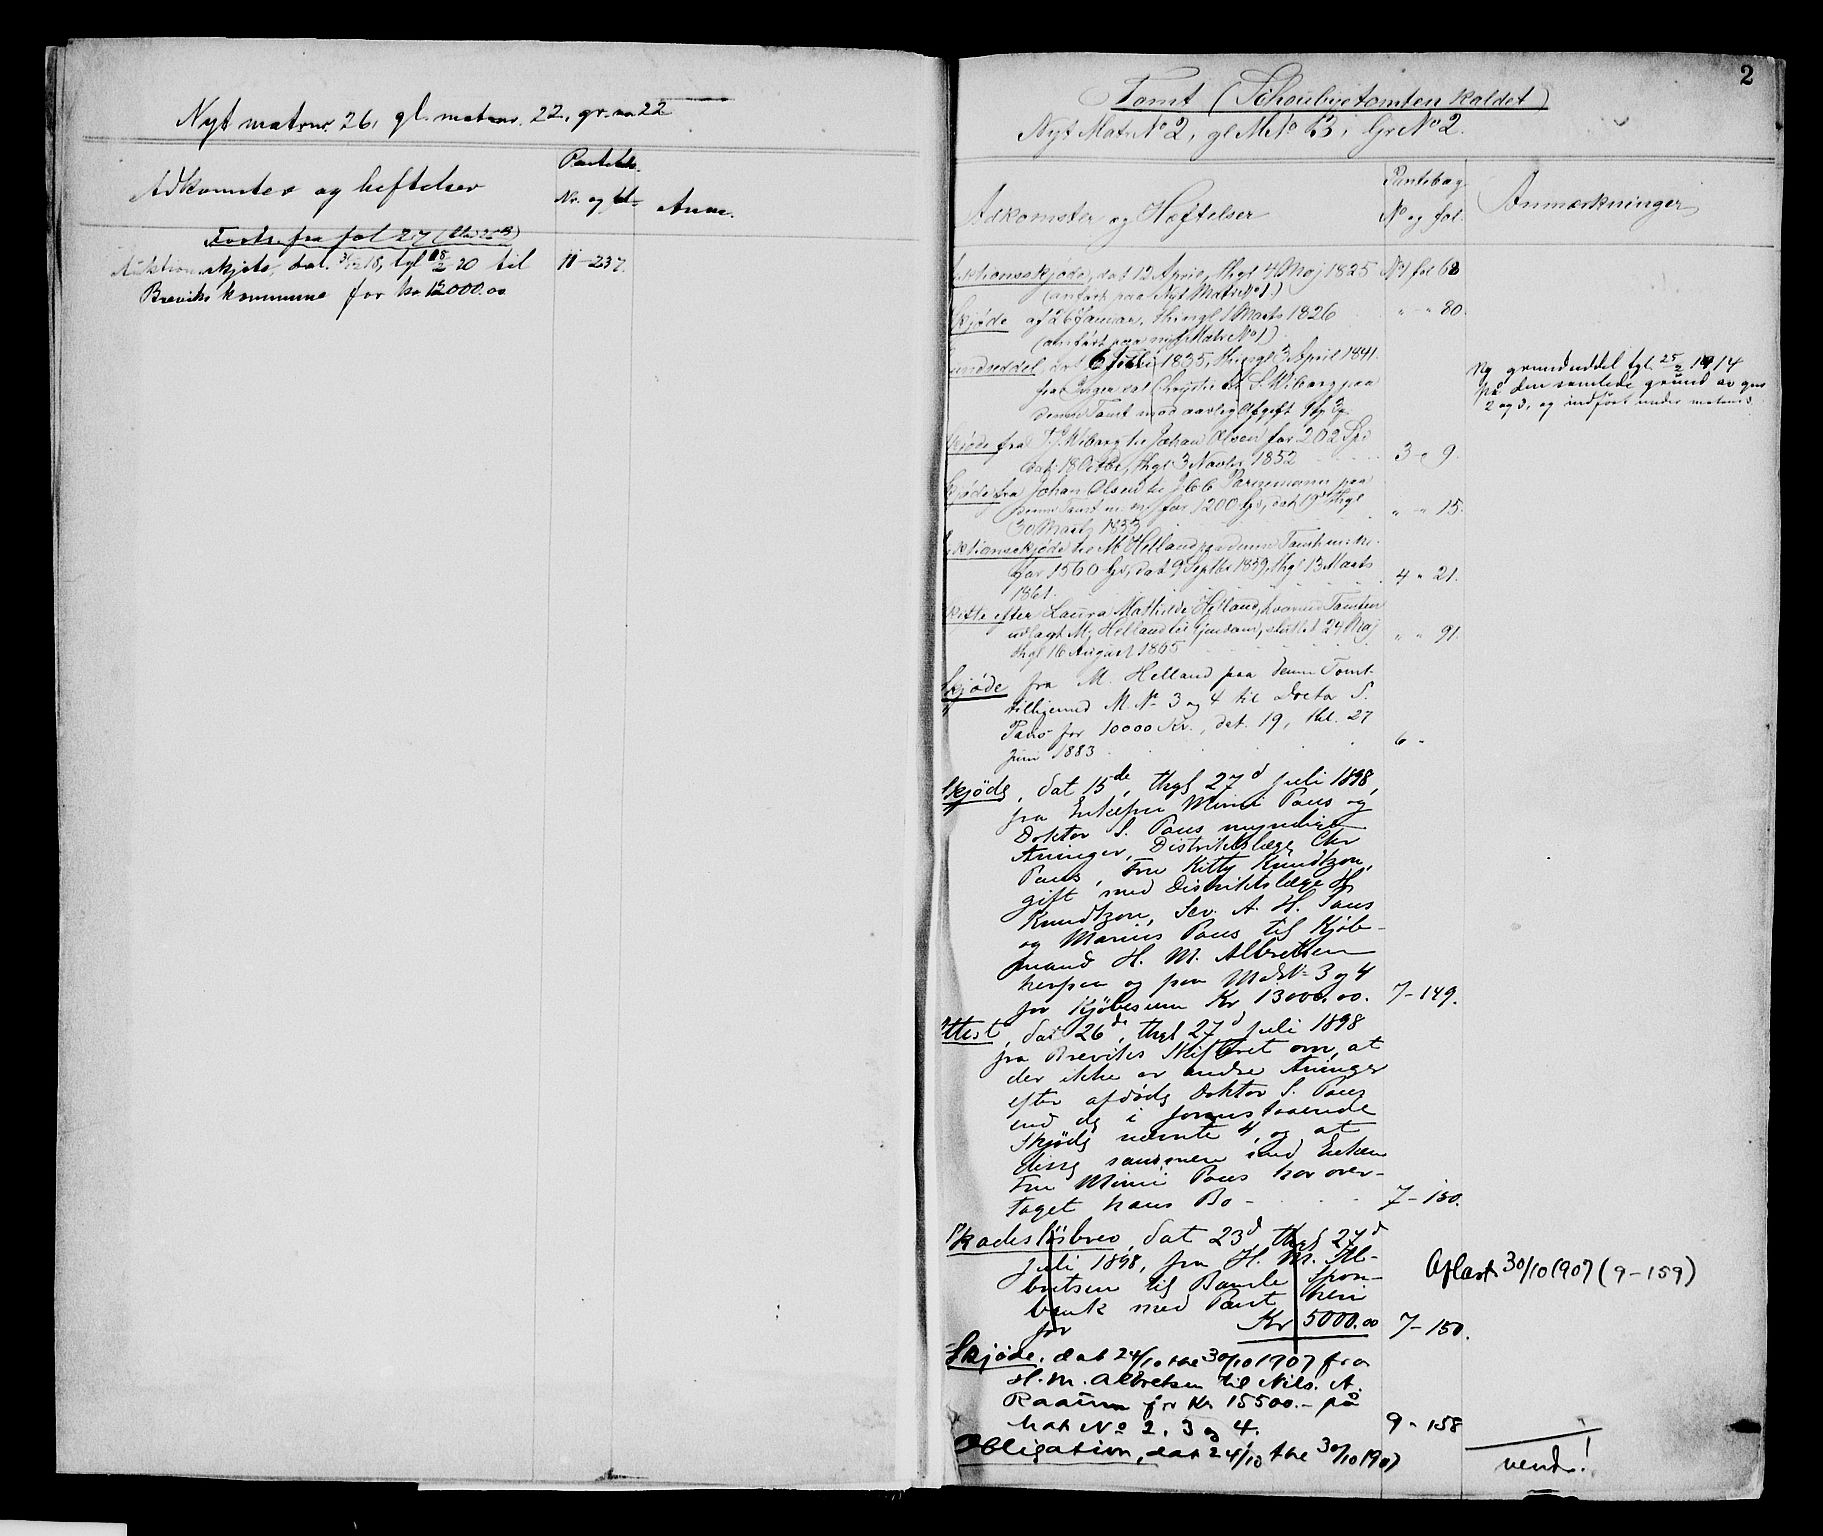 Nyt matrnr. 26, gl. matrnr. 22, gr. nr 22
Adkomster og heftelser
Pantebk.
Nr. og fol.
Anm.
Forts. fra fol 27
Auktionsskjøte, dat. 31/12 18, tgl 18/2 20 til
11 - 237.
Breviks kommune for kr 12000.00
2
Tomt (Schoubyetomten kaldet)
Nyt Matr No 2, gl M No 13, Gr No 2.
Adkomster og Hæftelser
Pantebog
No og fol.
Anmærkninger
Auktionsskjøde, dat 12 April, thgl 4 Maj 1825
No 1 fol 68
(anført paa Nyt Matr No 1.)
Skjøde af 26 Januar, thingl 1 Marts 1826
" " 80.
(anført paa nyt Matr No 1)
Grundseddel, dat 6 Febr 1835, thingl 3 April 1841.
fra til S. Wiborg paa
denne Tomt mod aarlig Afgift
Ny grundseddel tgl. 25/2 1914
på den samlede grund av gnr
2 og 3, og indført under matrnr 3
Skjøde fra J. S. Wiborg til Johan Olsen for 202 Spd
dat 18 Octbr, thgl 3 Novbr 1852
3 " 9.
Skjøde fra Johan Olsen til J C C paa
denne Tomt for 1200 Spd, dat 19 thgl
30 Marts 1853
" " 15.
Auktionsskjøde til M. Helland paa denne Tomt
for 1560 Spd, dat 9 Septbr 1859, thgl 13 Marts
1861.
4 " 21.
Skifte efter Laura Mathilde Helland, hvorved Tomten
udlagt M. Helland til Eiendom, sluttet 24 Maj
thgl 16 August 1865
" " 91.
Skjøde fra M. Helland paa denne Tomt
tilligemed M. No 3 og 4 til Doctor S.
Paus for 10000 Kr., dat. 19, thl. 27
Juni 1883
6 "
Skjøde, dat 15de, thgl 27d Juli 1898,
fra Enkefru Mimi Paus og
Doktor S. Paus myndige
Arvinger, Distriktslæge Chr
Paus, Fru Kitty Knudtzon,
gift med Distriktslæge H
Knudtzon, Sev. A. H. Paus
og Marius Paus til Kjøb-
mand H. M. Albretsen
herpaa og paa M No 3 og 4
for Kjøbesum Kr 13000.00.
7 - 149.
Attest, dat 26d, thgl 27d Juli 1898
fra Breviks Skifteret om, at
der ikke er andre Arvinger
efter afdøde Doktor S. Paus
end de i foranstaaende
Skjøde nævnte 4, og at
disse sammen med Enken
Fru Mimi Paus har over-
taget hans Bo -
7 - 150.
Skadesløsbrev, dat 23d thgl 27d
Juli 1898, fra H. M. Al-
bretsen til Bamle Spare-
bank med Pant heri
for Kr 5000.00
7 - 150.
Aflæst 30/10 1907 (9 - 159)
Skjøde, dat 24/10 thl 30/10 1907 fra
H. M. Albretsen til Nils. A.
Raaum for Kr. 15500.- på
Mat No 2, 3 og 4.
9 - 158
Obligation, dat 24/10 thl 30/10 1907
vend!